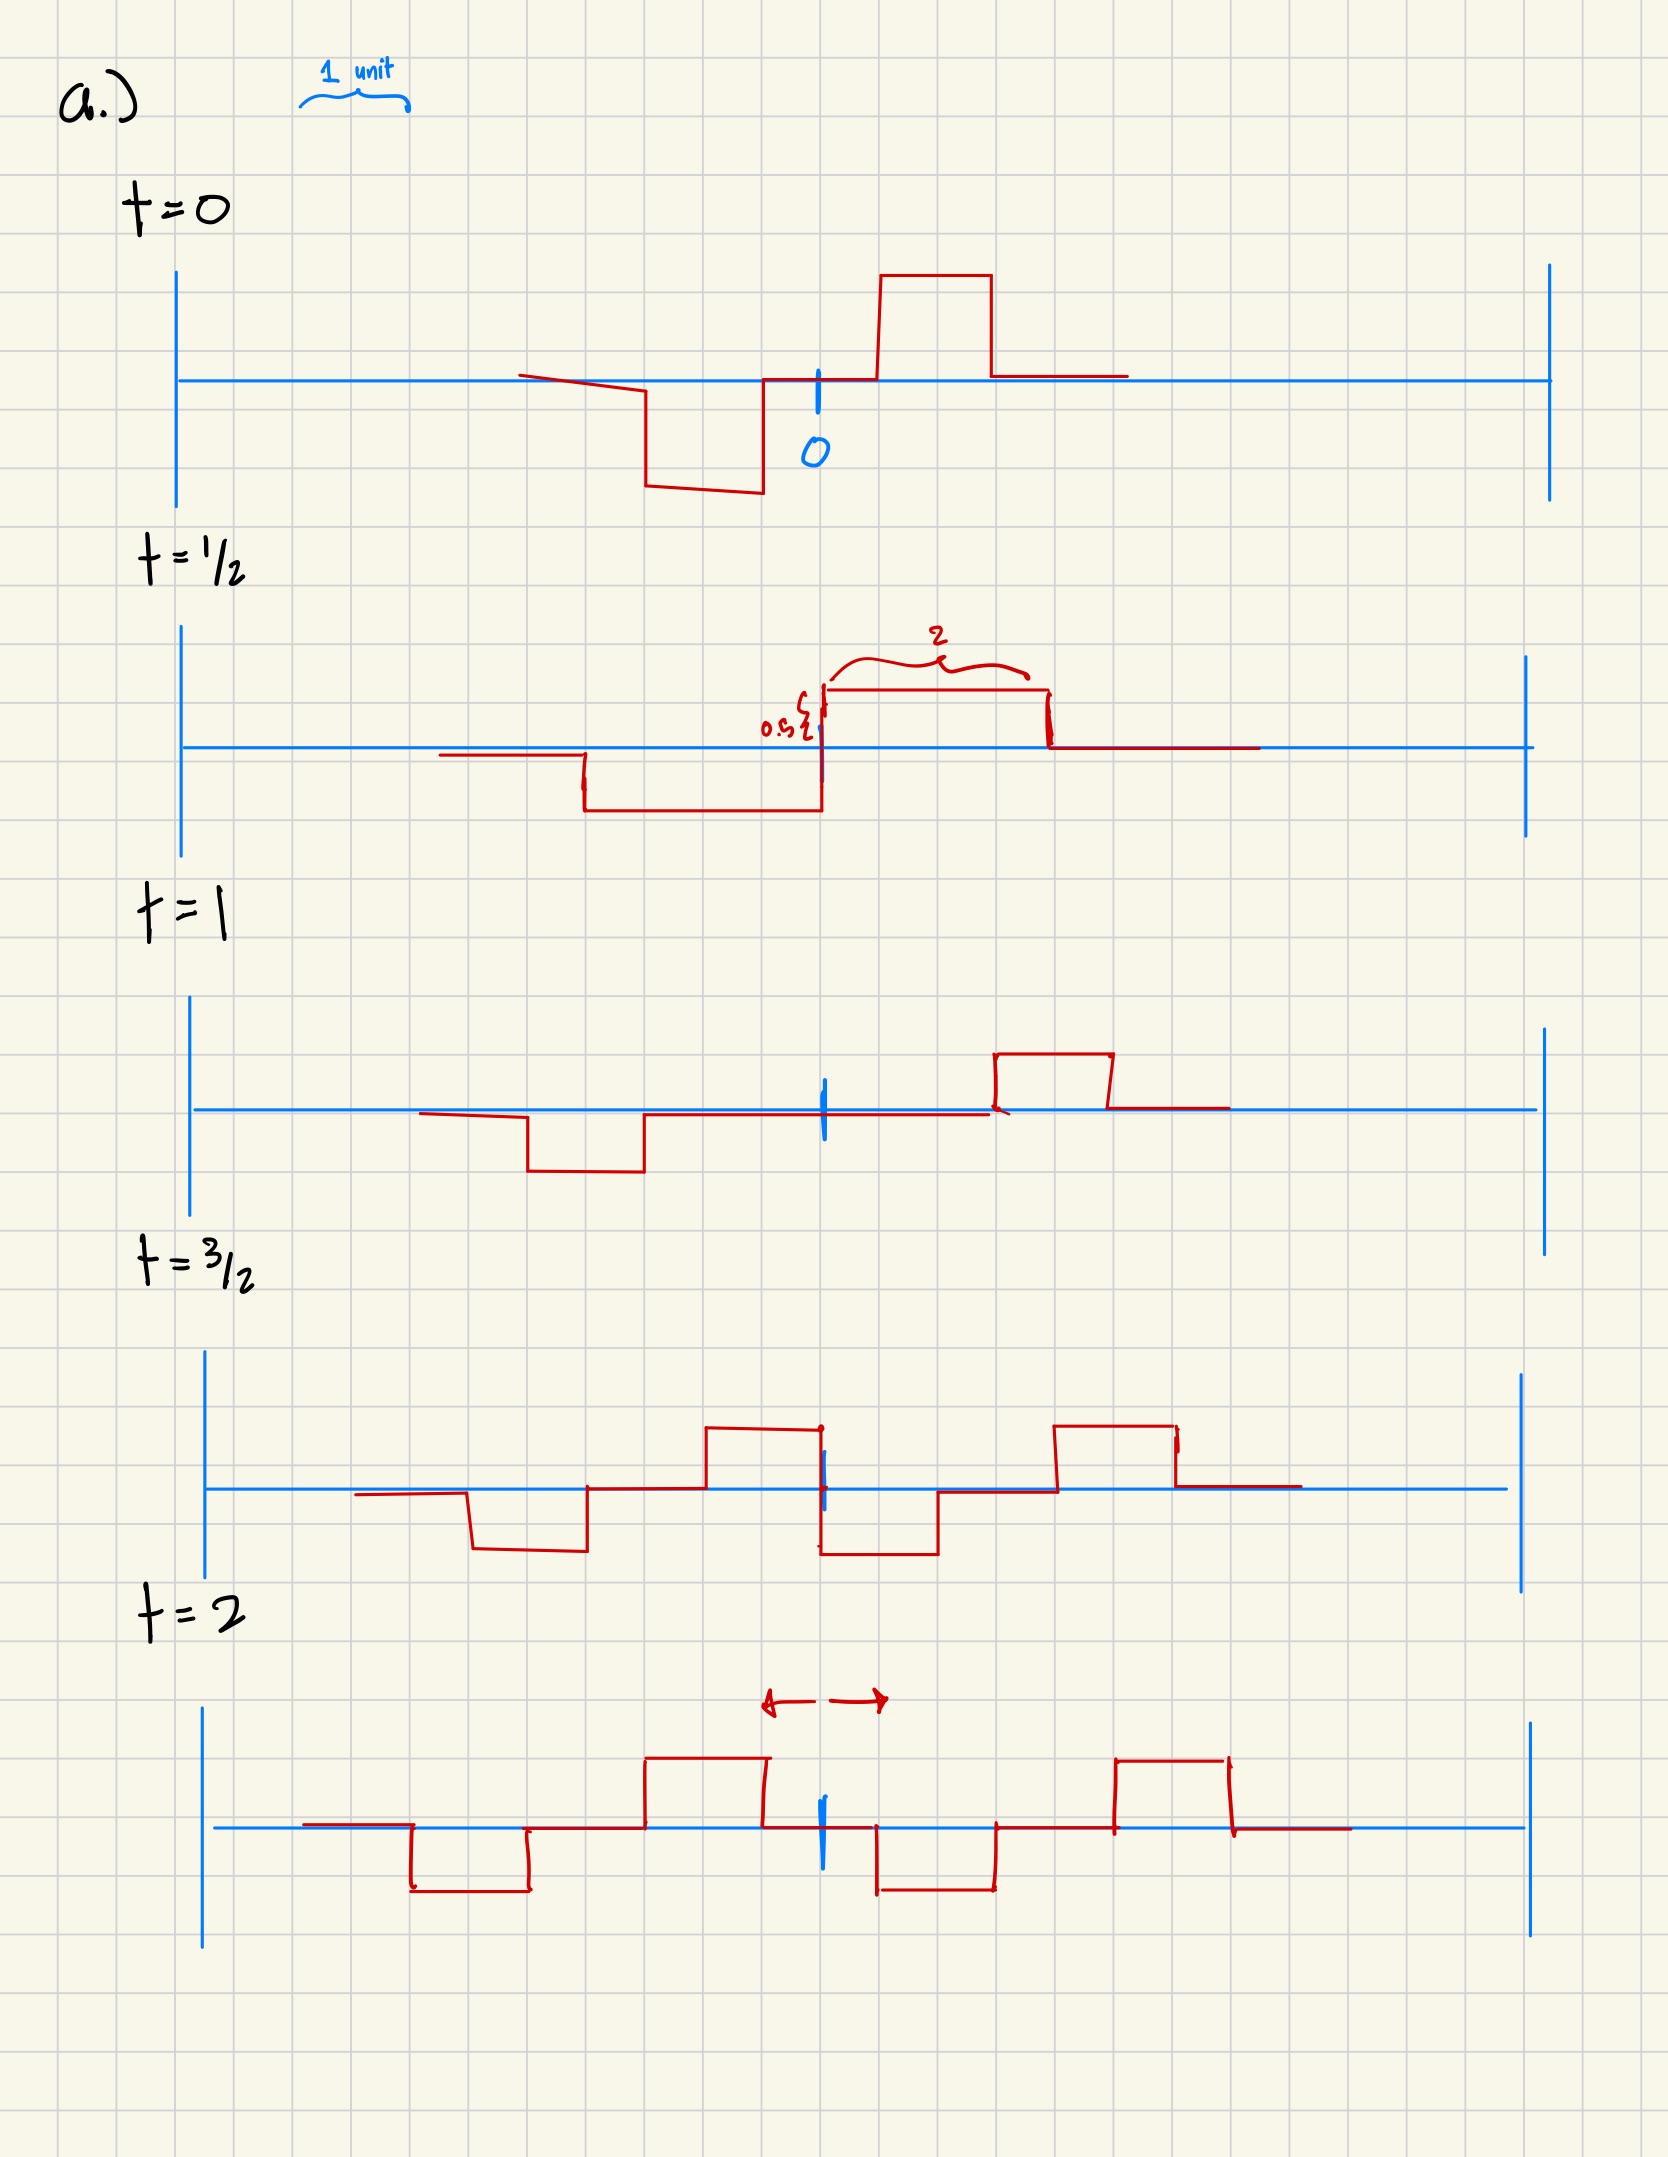 a.)
1 unit
t=0
0
t=1/2
2
0.5
t=1
t=3/2
t=2